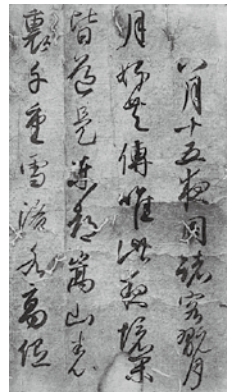 八月十五夜同諸客翫月
月好共傳唯此夜境閑
皆道是東都嵩山表
裏千重雪洛水高低